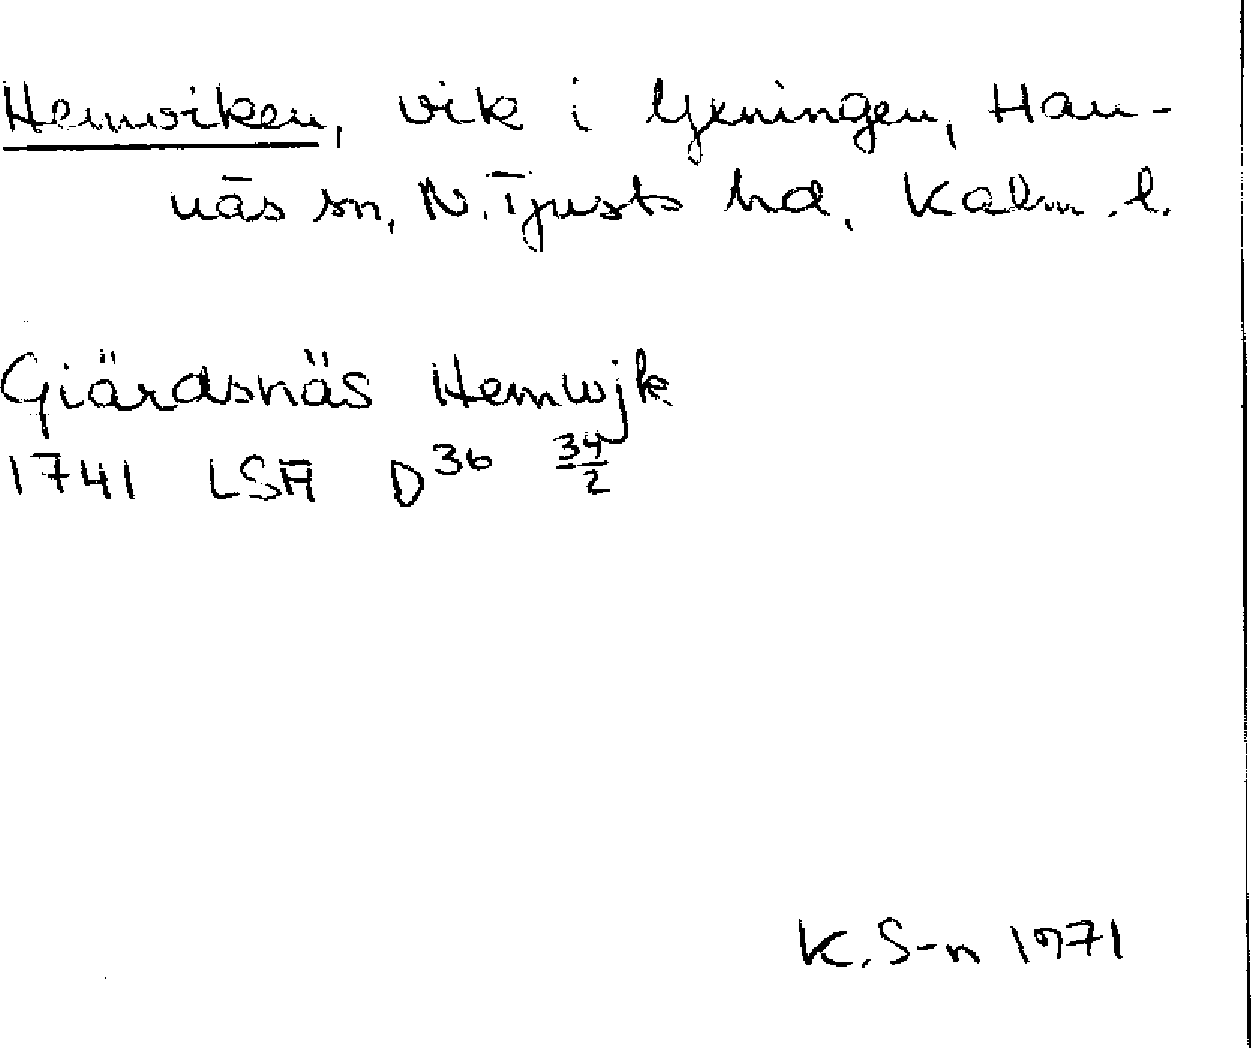 Hemviken, vik i Yxningen, Han-
näs sn, N. Tjusts hd, Kalm. l.
Giärdsnäs Hemwjk
1741 LSA D36 34/2
K. S-n 1971